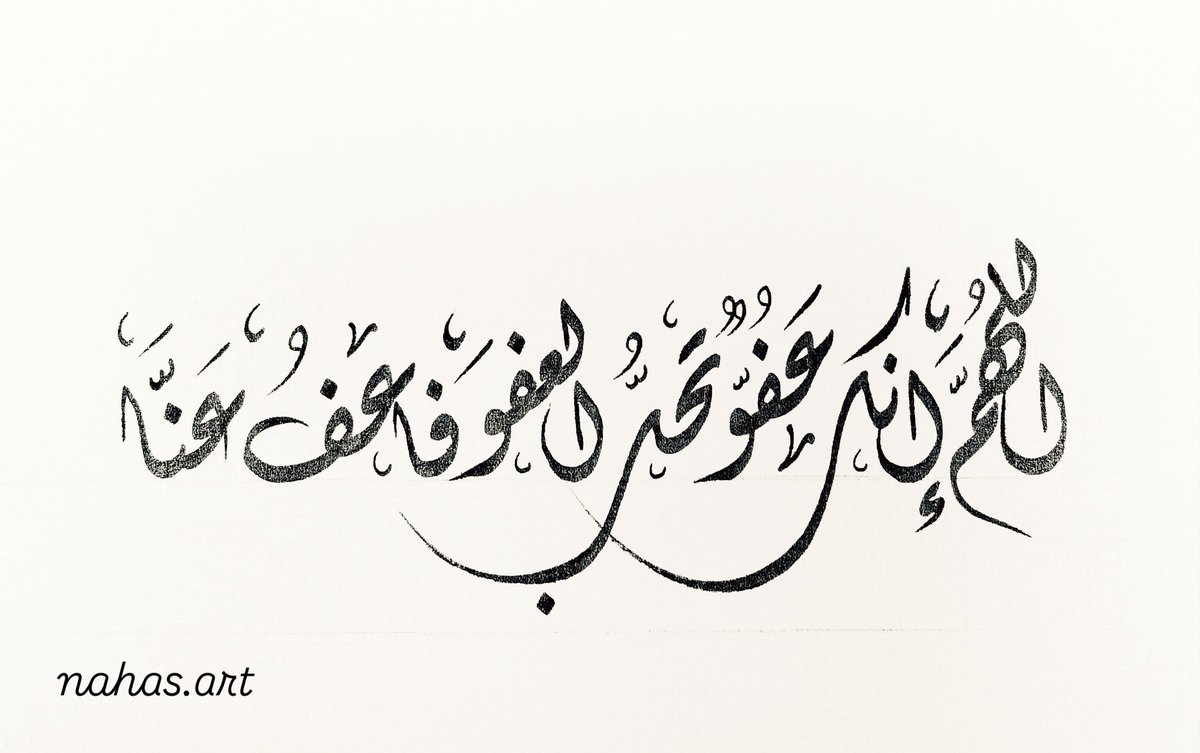 اللهمَّ إنك عَفُوٌّ تحبُّ العفوَ فاعفُ عنَّا
nahas.art